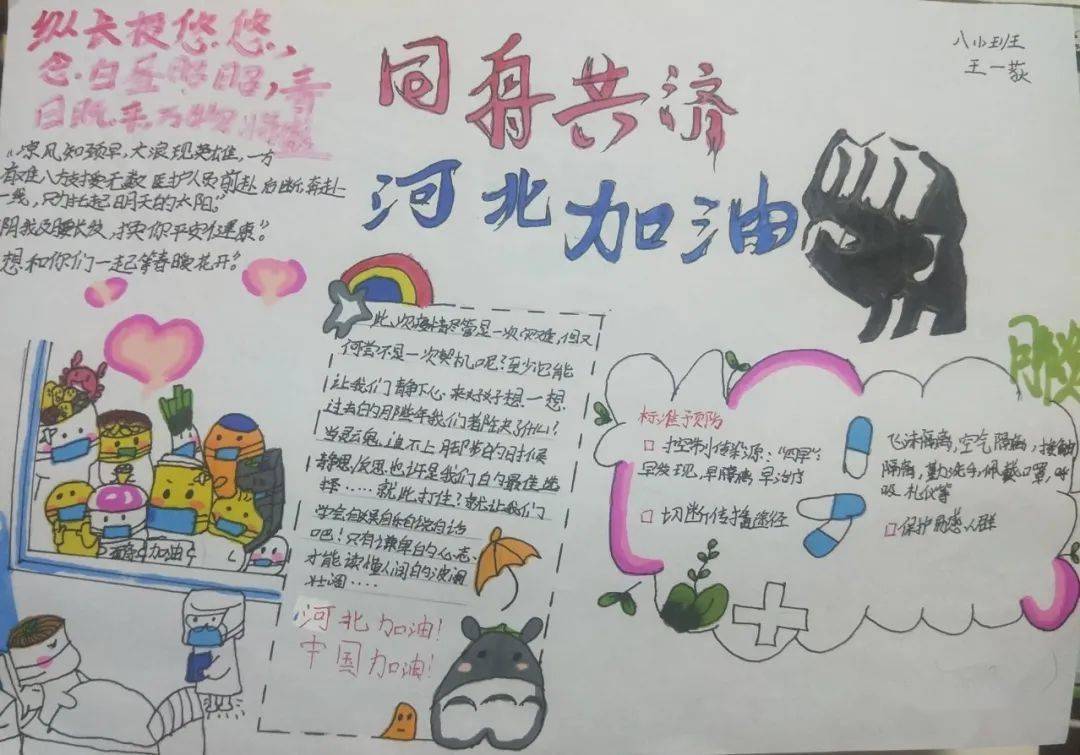 纵长夜悠悠，
念白昼昭昭，春
日既来万物将
八小班
王一荻
同舟共济
河北加油
"凉风知颈早，大浪现英雄，一方
有难八方支援无数医护人员前赴后断奔赴
一线，只为托起明天的太阳。"
阴我及腰长发，换你平安健康"。
想和你们一起等春暖花开？
此次疫情尽管是一次灾难，但又
何尝不是一次契机呢？至少它能
让我们静下心来好好想一想
过去的那些年我们都在失了什么？
当灵魂追不上脚步的时候
静思，反思也许是我们的最佳选
择……就此打住？就让我们
学会做
吧！只有谦卑的心态
才能读懂人间的波澜
壮阔……
河北加油！
中国加油！
加油
标准预防
控制传染源："四早"：
早发现，早隔离 早治疗
切断传播途径
飞沫隔离，空气隔离，接触
隔离，勤洗手，佩戴口罩，呼
吸礼仪等
保护易感人群